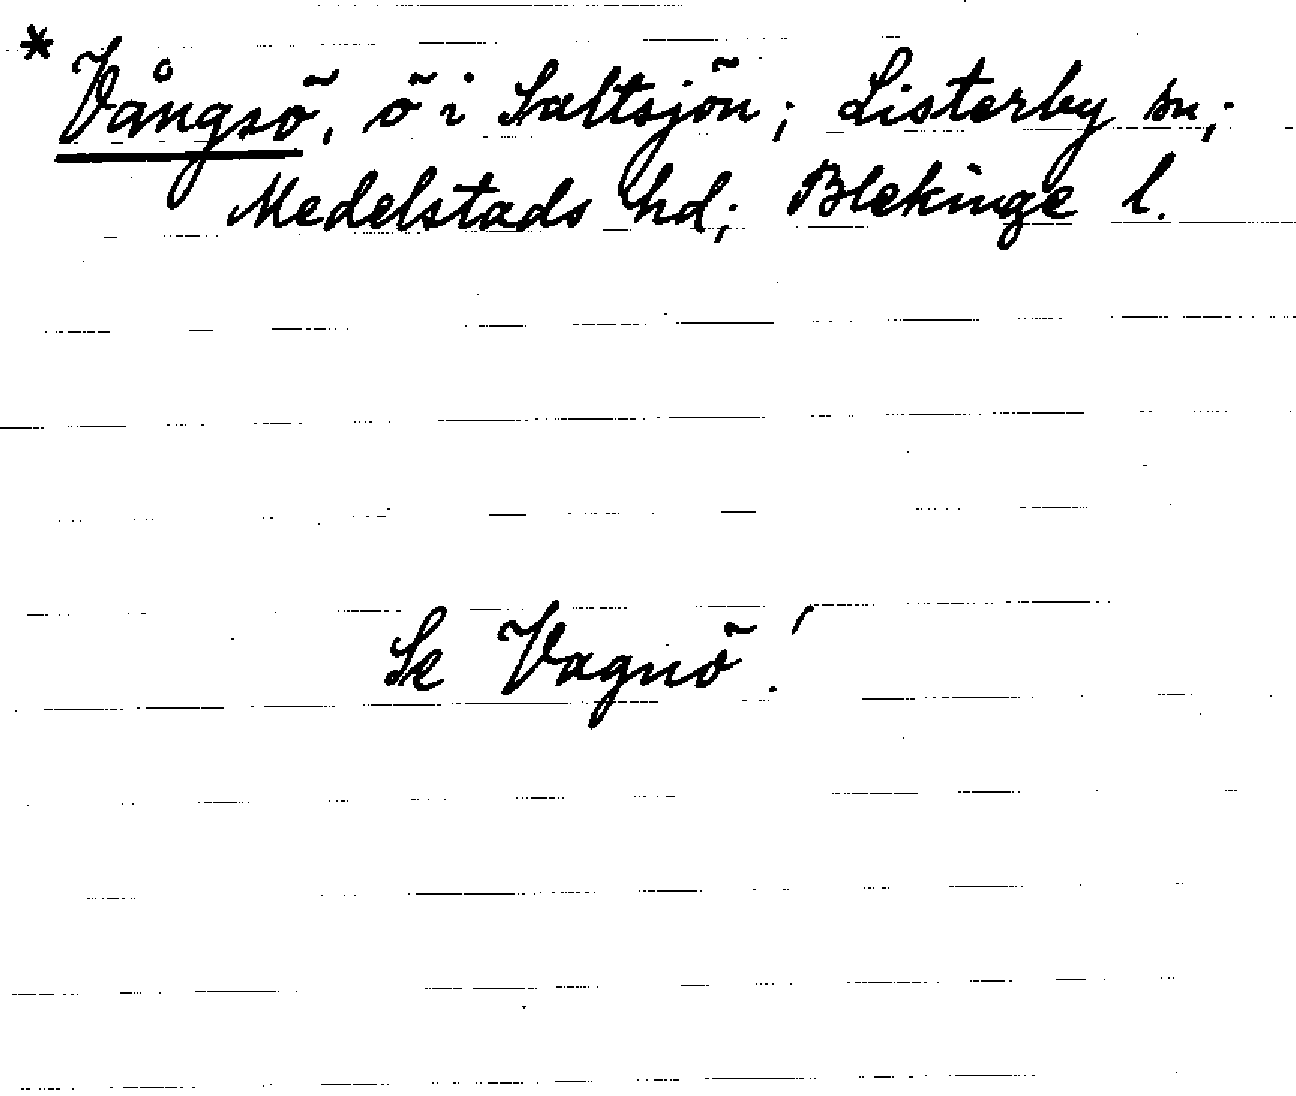 * Vångsö, ö i Saltsjön; Listerby sn;
Medelstads hd; Blekinge l.
Se Vagnö!